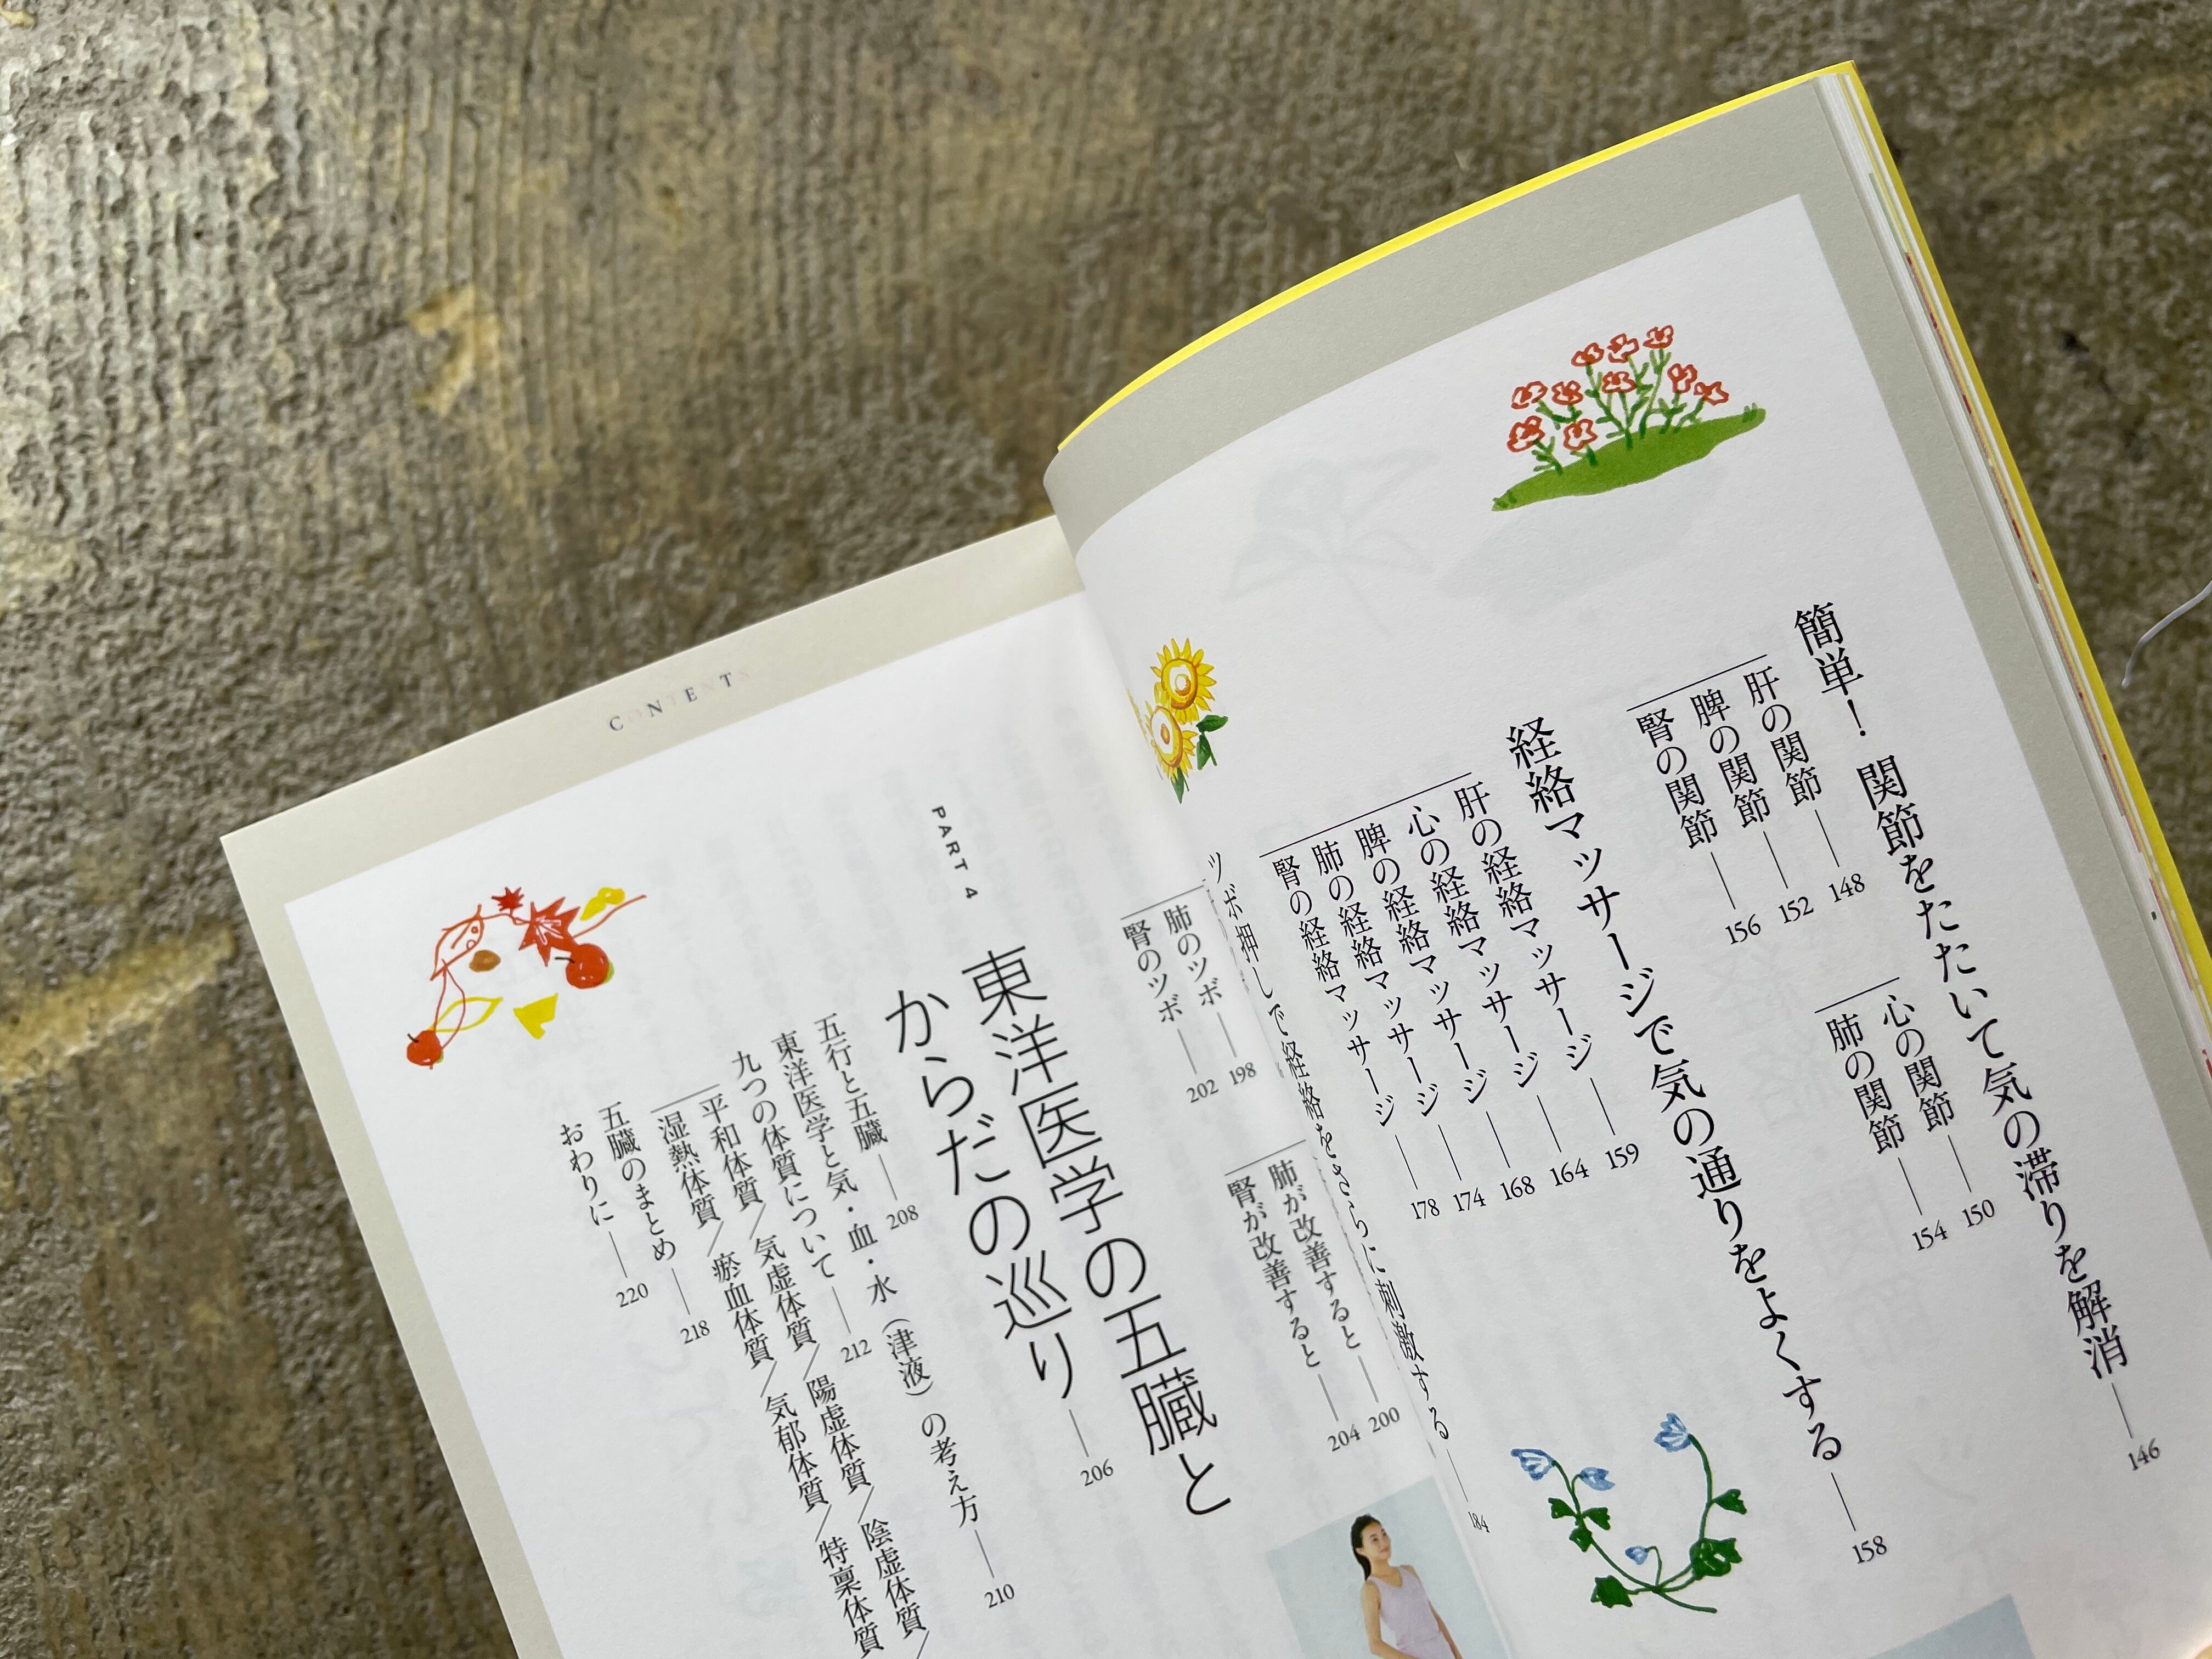 簡単！ 関節をたたいて気の滞りを解消 — 146
肝の関節 — 148
心の関節 — 150
脾の関節 — 152
肺の関節 — 154
腎の関節 — 156
経絡マッサージで気の通りをよくする — 158
肝の経絡マッサージ — 159
心の経絡マッサージ — 164
脾の経絡マッサージ — 168
肺の経絡マッサージ — 174
腎の経絡マッサージ — 178
ツボ押しで経絡をさらに刺激する — 184
CONTENTS
肺のツボ — 198
肺が改善すると — 200
腎のツボ — 202
腎が改善すると — 204
PART 4
東洋医学の五臓と
からだの巡り — 206
五行と五臓 — 208
東洋医学と気・血・水（津液）の考え方 — 210
九つの体質について — 212
平和体質／気虚体質／陽虚体質／陰虚体質／
湿熱体質／瘀血体質／気郁体質／特稟体質
五臓のまとめ — 218
おわりに — 220